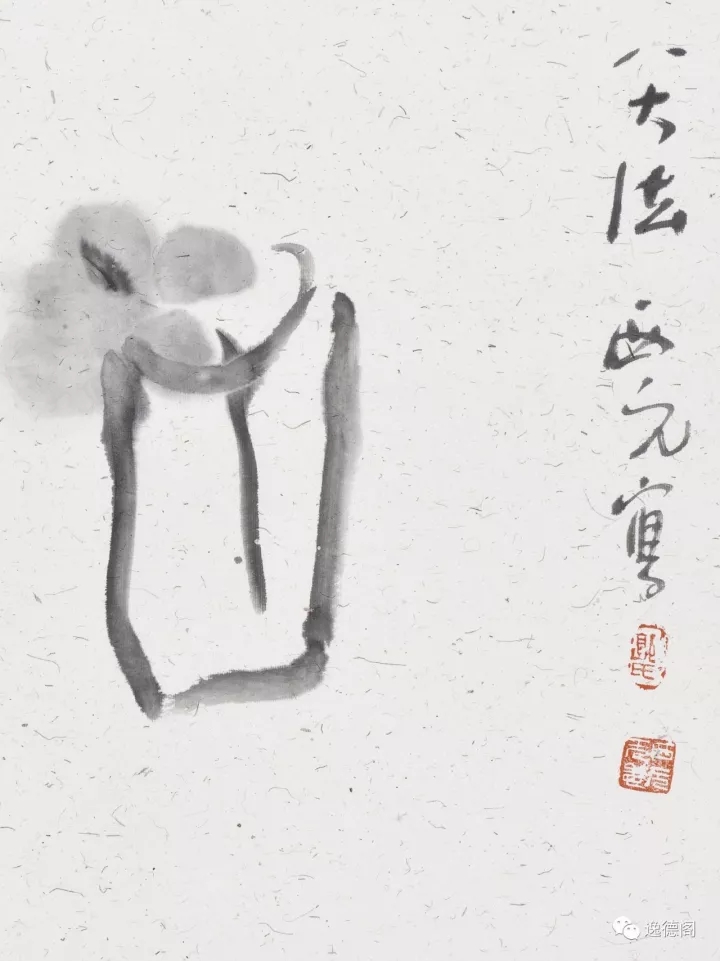 八大法 西元寫
逸德阁